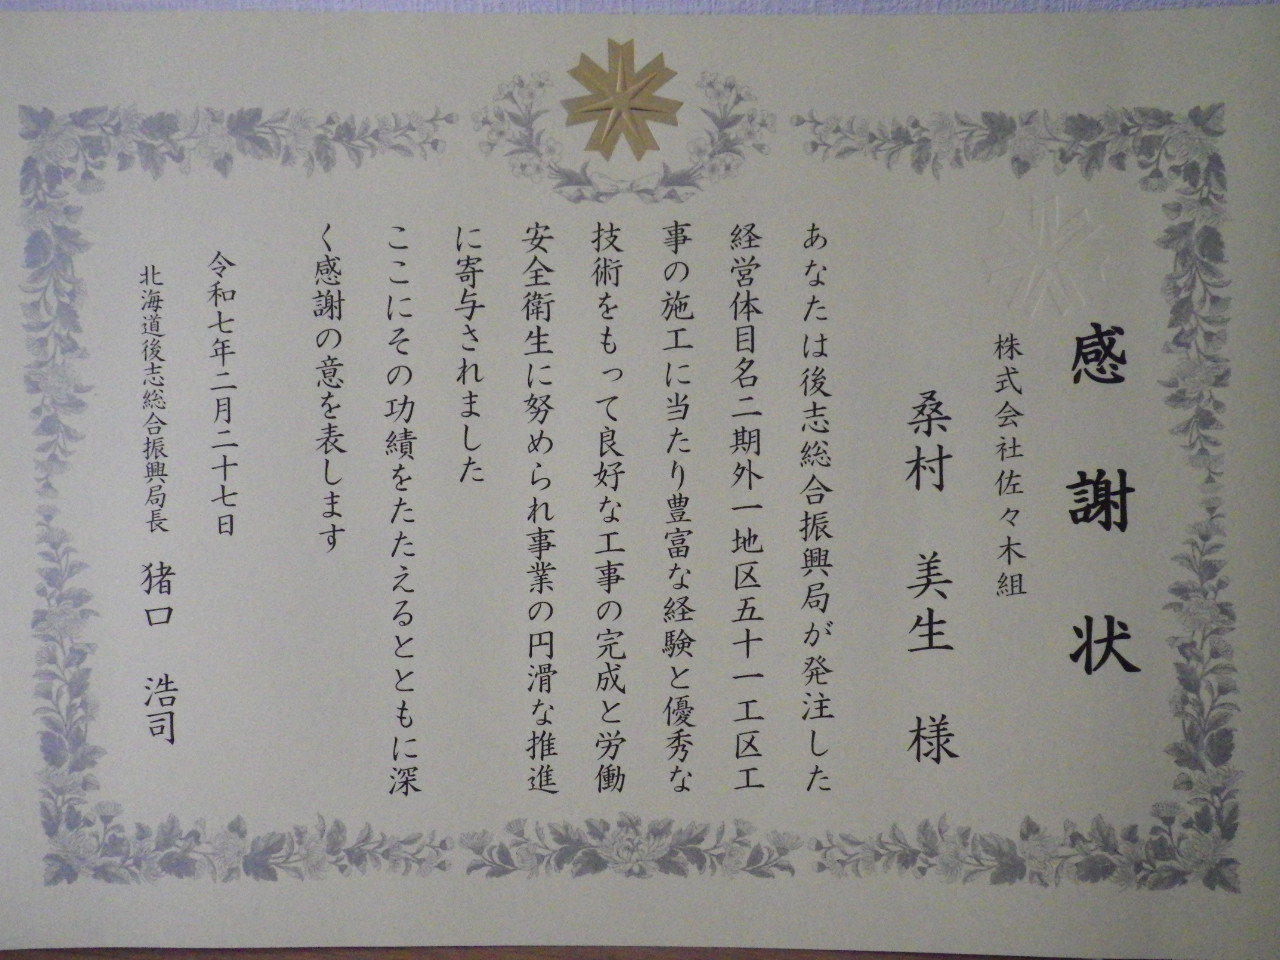 感謝状
株式会社佐々木組
桑村 美生 様
あなたは後志総合振興局が発注した
経営体目名二期外一地区五十一工区工
事の施工に当たり豊富な経験と優秀な
技術をもって良好な工事の完成と労働
安全衛生に努められ事業の円滑な推進
に寄与されました
ここにその功績をたたえるとともに深
く感謝の意を表します
令和七年二月二十七日
北海道後志総合振興局長 猪口 浩司